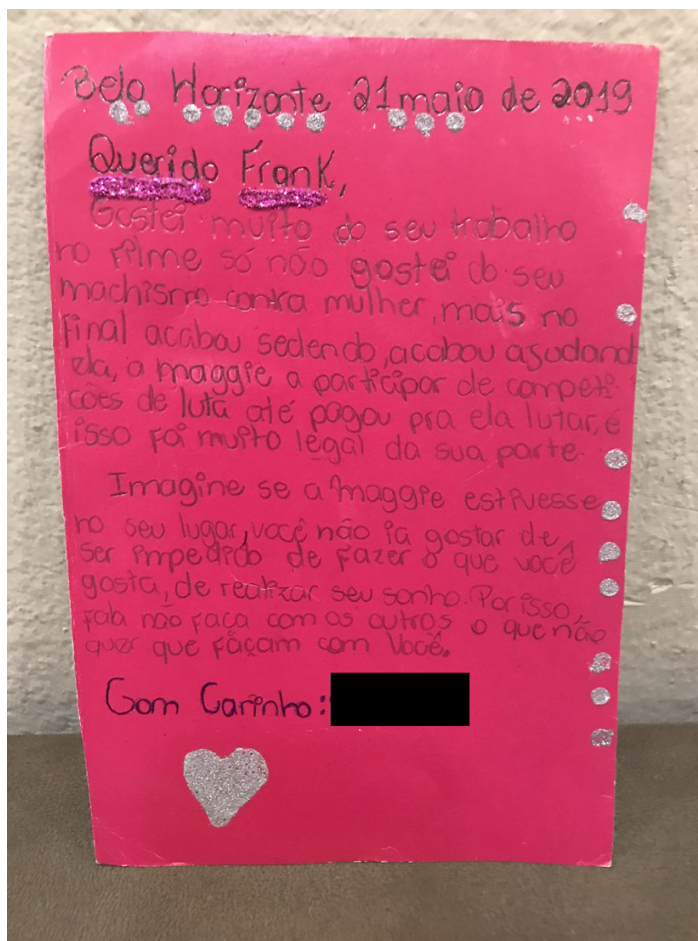 Belo Horizonte 21 maio de 2019
Querido Frank,
Gostei muito do seu trabalho
no filme só não gostei do seu
machismo contra mulher, mais no
final acabou sedendo, acabou asudand
ela, a maggie a participar de competi
ções de luta até pagou pra ela lutar, é
isso foi muito legal da sua parte.
Imagine se a Maggie estivesse
no seu lugar, você não ia gostar de
ser impedido de fazer o que você
gosta, de realizar seu sonho. Por isso,
fala não faça com os outros o que não
quer que façam com Você.
Com Carinho: